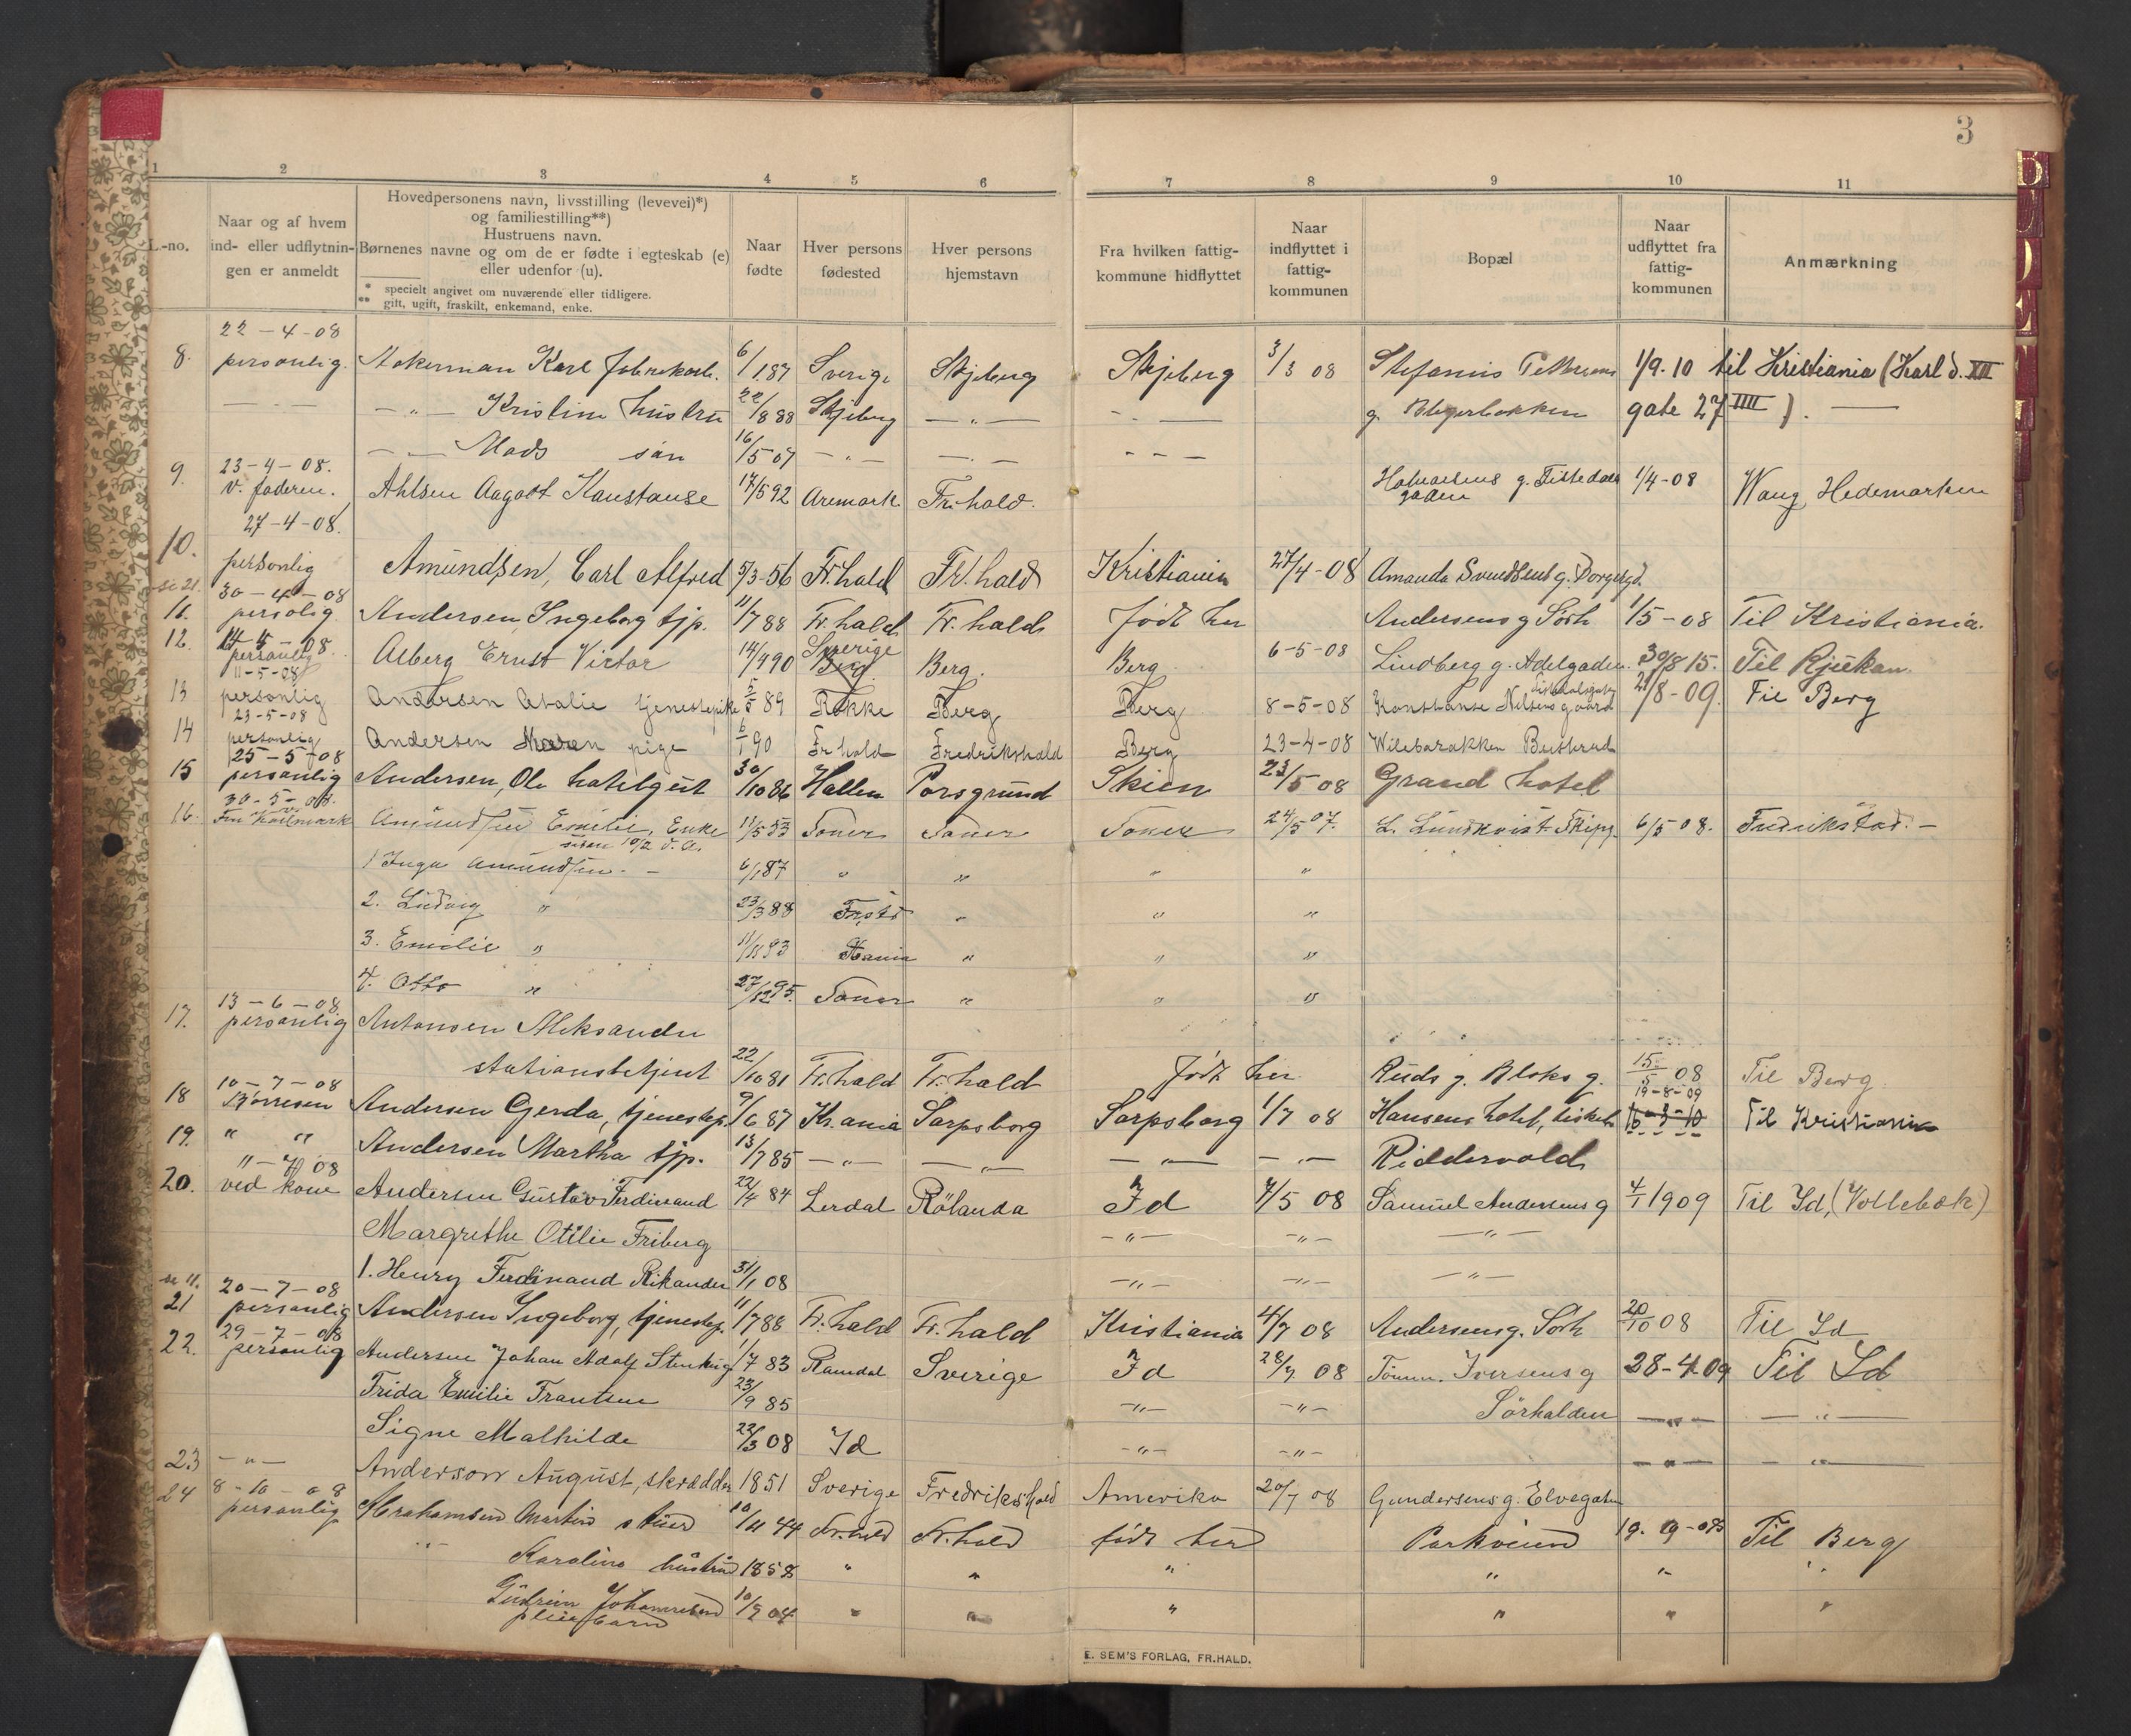 3
1 2 3 4 5 6 7 8 9 10 11
L.-no.
Naar og af hvem
ind- eller udflytnin-
gen er anmeldt
Hovedpersonens navn, livsstilling (levevei)*)
og familiestilling**)
Hustruens navn.
Børnenes navne og om de er fødte i egteskab (e)
eller udenfor (u).
* specielt angivet om nuværende eller tidligere.
** gift, ugift, fraskilt, enkemand, enke.
Naar
fødte
Hver persons
fødested
Hver persons
hjemstavn
Fra hvilken fattig-
kommune hidflyttet
Naar
indflyttet i
fattig-
kommunen
Bopæl
Naar
udflyttet fra
fattig-
kommunen
Anmærkning
22-4-08
8. personlig. Karl 6/1 87 Sverige Skjeberg Skjeberg 3/3 08 1/9.10 til Kristiania (Karl d. XII
— " — Kristine hustru 22/8 88 Skjeberg — " — g. gate 27 IIII ). —
— " — Mads søn 16/5 07 — " — — " — — — —
23-4-08.
9. v. faderen. Ahlsen Aagodt Konstanse 17/5 92 Aremark Fr.hald. g. Tistedals 1/4-08 Wang, Hedemarken
gaden
27-4-08.
10. personlig Amundsen, Carl Alfred 5/3-56 Fr.hald Fr.hald Kristiania 27/4-08 Amanda Svendsens g.
se 21. 30-4-08
11. persolig Andersen, Ingeborg tjp. 11/7 88 Fr.hald Fr.hald født her Andersens g Sørh 1/5-08 Til Kristiania.
12. 14-5-08 personlig Alberg Ernst Victor 14/4 90 Sverige Berg. Berg 6-5-08 Lindberg g. Adelgaden. 30/8 15. Til Rjukan
11-5-08
13 personlig Andersen Atalie tjenestepike 5/5 89 Rokke Berg Berg 8-5-08 Konstanse Nilsens gaard 21/8-09. Til Berg
23-5-08
14 personlig Andersen Maren pige 6/1 90 Fr hald Fredrikshald Berg 23-4-08
25-5-08
15 personlig Andersen, Ole hotelgut 30/10 86 Porsgrund Skien 23/5 08 Grand hotel
30-5-08.
16. Amundsen Emilie, Enke 11/5 53 Soner Soner Soner 24/5 07. L. Lundkvist 6/5 08. Fredrikstad. —
1 Inga Amundsen. — 6/1 87 " " " "
2. Ludvig " 23/3 88 Frstd " " "
3. Emilie " 11/11 93 Kania " " "
4. Otto " 27/12 95. Soner " " "
13-6-08
17. personlig Antonsen Aleksander
stationsbetjent 22/10 81 Fr.hald Fr.hald født her Ruds g. Bloks g. 15/5 08 Til Berg
10-7-08 19-8-09
18 Børresen Andersen Gerda, tjenestep. 9/6 87 Kr.ania Sarpsborg Sarpsborg 1/7 08 Hansens hotel, Til Kristiania
19. " " Andersen Martha tjp. 13/7 85 — " — — " — — " — — " — Riddervold
11-7 08
20. ved kone Andersen Gustav Ferdinand 22/4 84 Lerdal Rölanda Id 7/5 08 Samuel Andersens g 4/1 1909 Til Id, (Vollebæk)
Margrethe Otilie Friberg — " — — " — — " —
1. Henry Ferdinand Rikander 31/1 08 — " — — " — — " —
se 11. 20-7-08
21 personlig Andersen Ingeborg, tjenestep. 11/7 88 Fr.hald Fr.hald Kristiania 4/7 08 Andersens g. Sørh 20/10 08 Til Id
29-7-08
22. personlig Andersen Johan Adolf 1/7 83 Sverige Id 28/7 08 Iversens g 28-4-09 Til Id
Frida Emilie Frantsen 23/9 85 — " — — " — Sørhalden — " — — " —
Signe Mathilde 22/3 08 Id — " — — " — — " — — " —
23 — " — Anderson August, skrædder 1851 Sverige Fredrikshald Amerika 20/7 08 Gundersens g. Elvegaten
8-10-08
24 personlig Abrahamsen Martin 10/11 44 Fr.hald Fr.hald født her Parkveien 19. 9-08 Til Berg
" — Karoline hustru 1858 " " " " " "
Gudrun Johannesen 10/2 04 " " " " " "
pleiebarn
E. SEM'S FORLAG, FR.HALD.